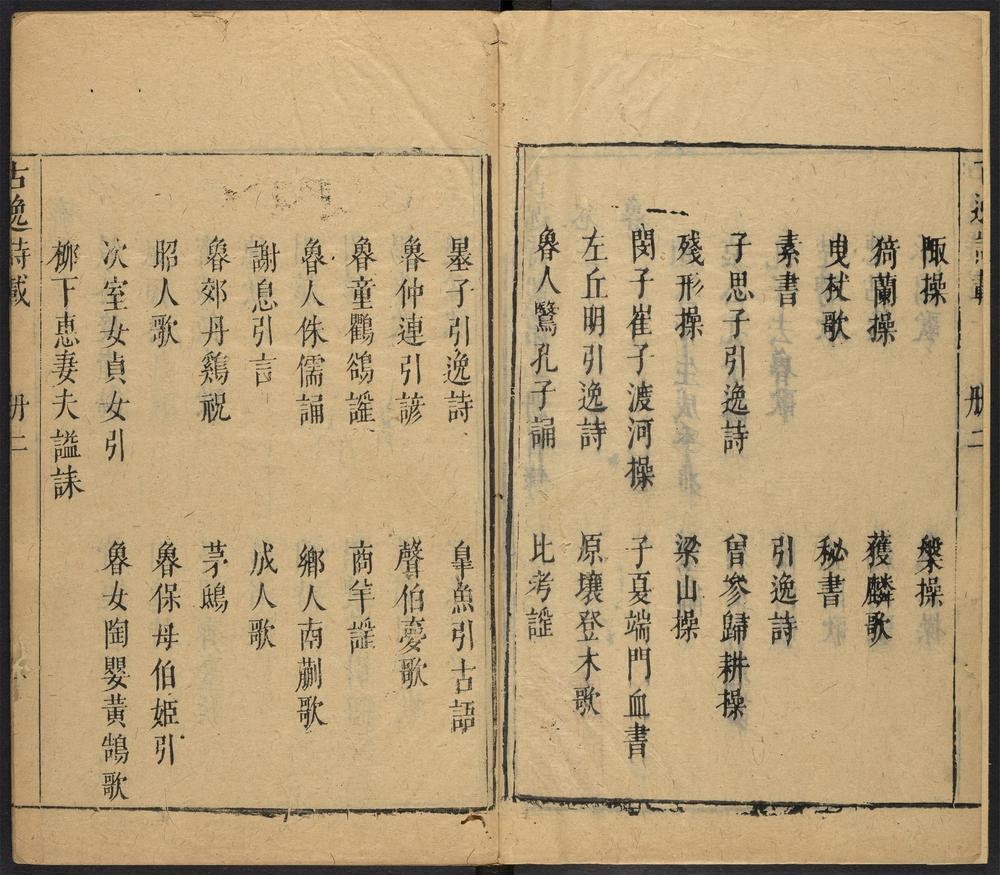 陬操　槃操
猗蘭操　獲麟歌
曳杖歌　秘書
素書　引逸詩
子思子引逸詩　曾參歸耕操
殘形操　梁山操
閔子崔子渡河操　子夏端門血書
左丘明引逸詩　原壤登木歌
魯人鷖孔子誦　比考謡
墨子引逸詩　臯魚引古語
魯仲連引諺　聲伯夢歌
魯童鸜鵒謡　商羊謡
魯人侏儒誦　鄉人南蒯歌
謝息引言　成人歌
魯郊丹鷄祝　茅鴟
昭人歌　魯保母伯姬引
次室女貞女引　魯女陶嬰黃鵠歌
柳下惠妻夫謚誄
古逸詩載　册二